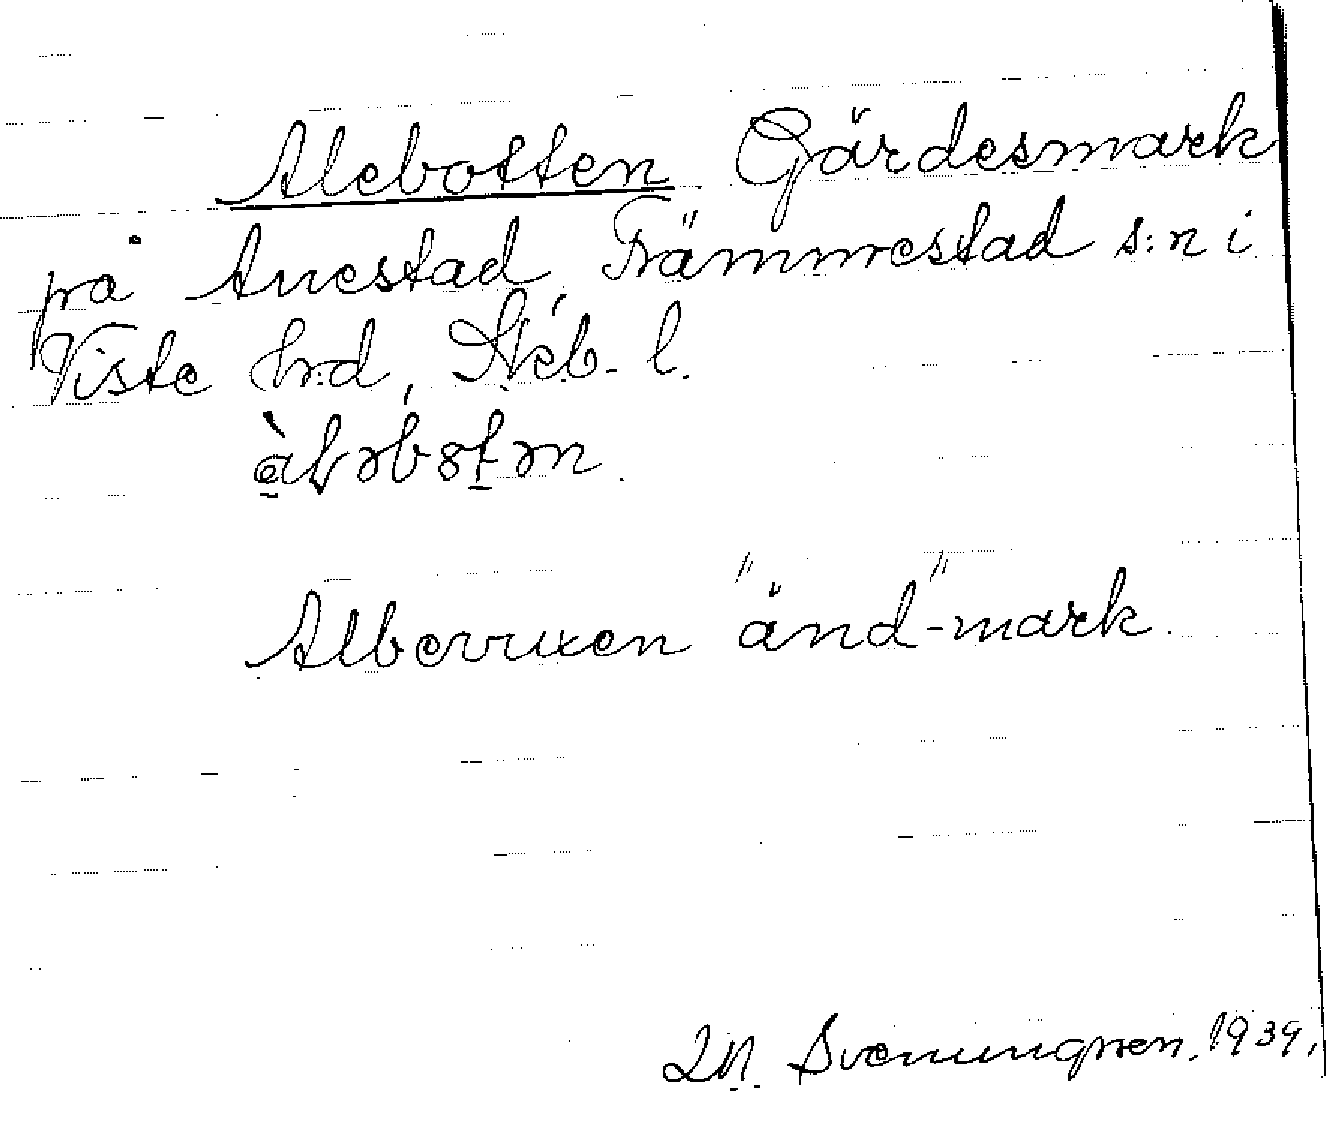 Alebotten Gärdesmark
på Anestad, Främmestad s:n i
Viste hrd, Skb. l.
Albevuxen "änd"-mark.
Svenungsen. 1939.